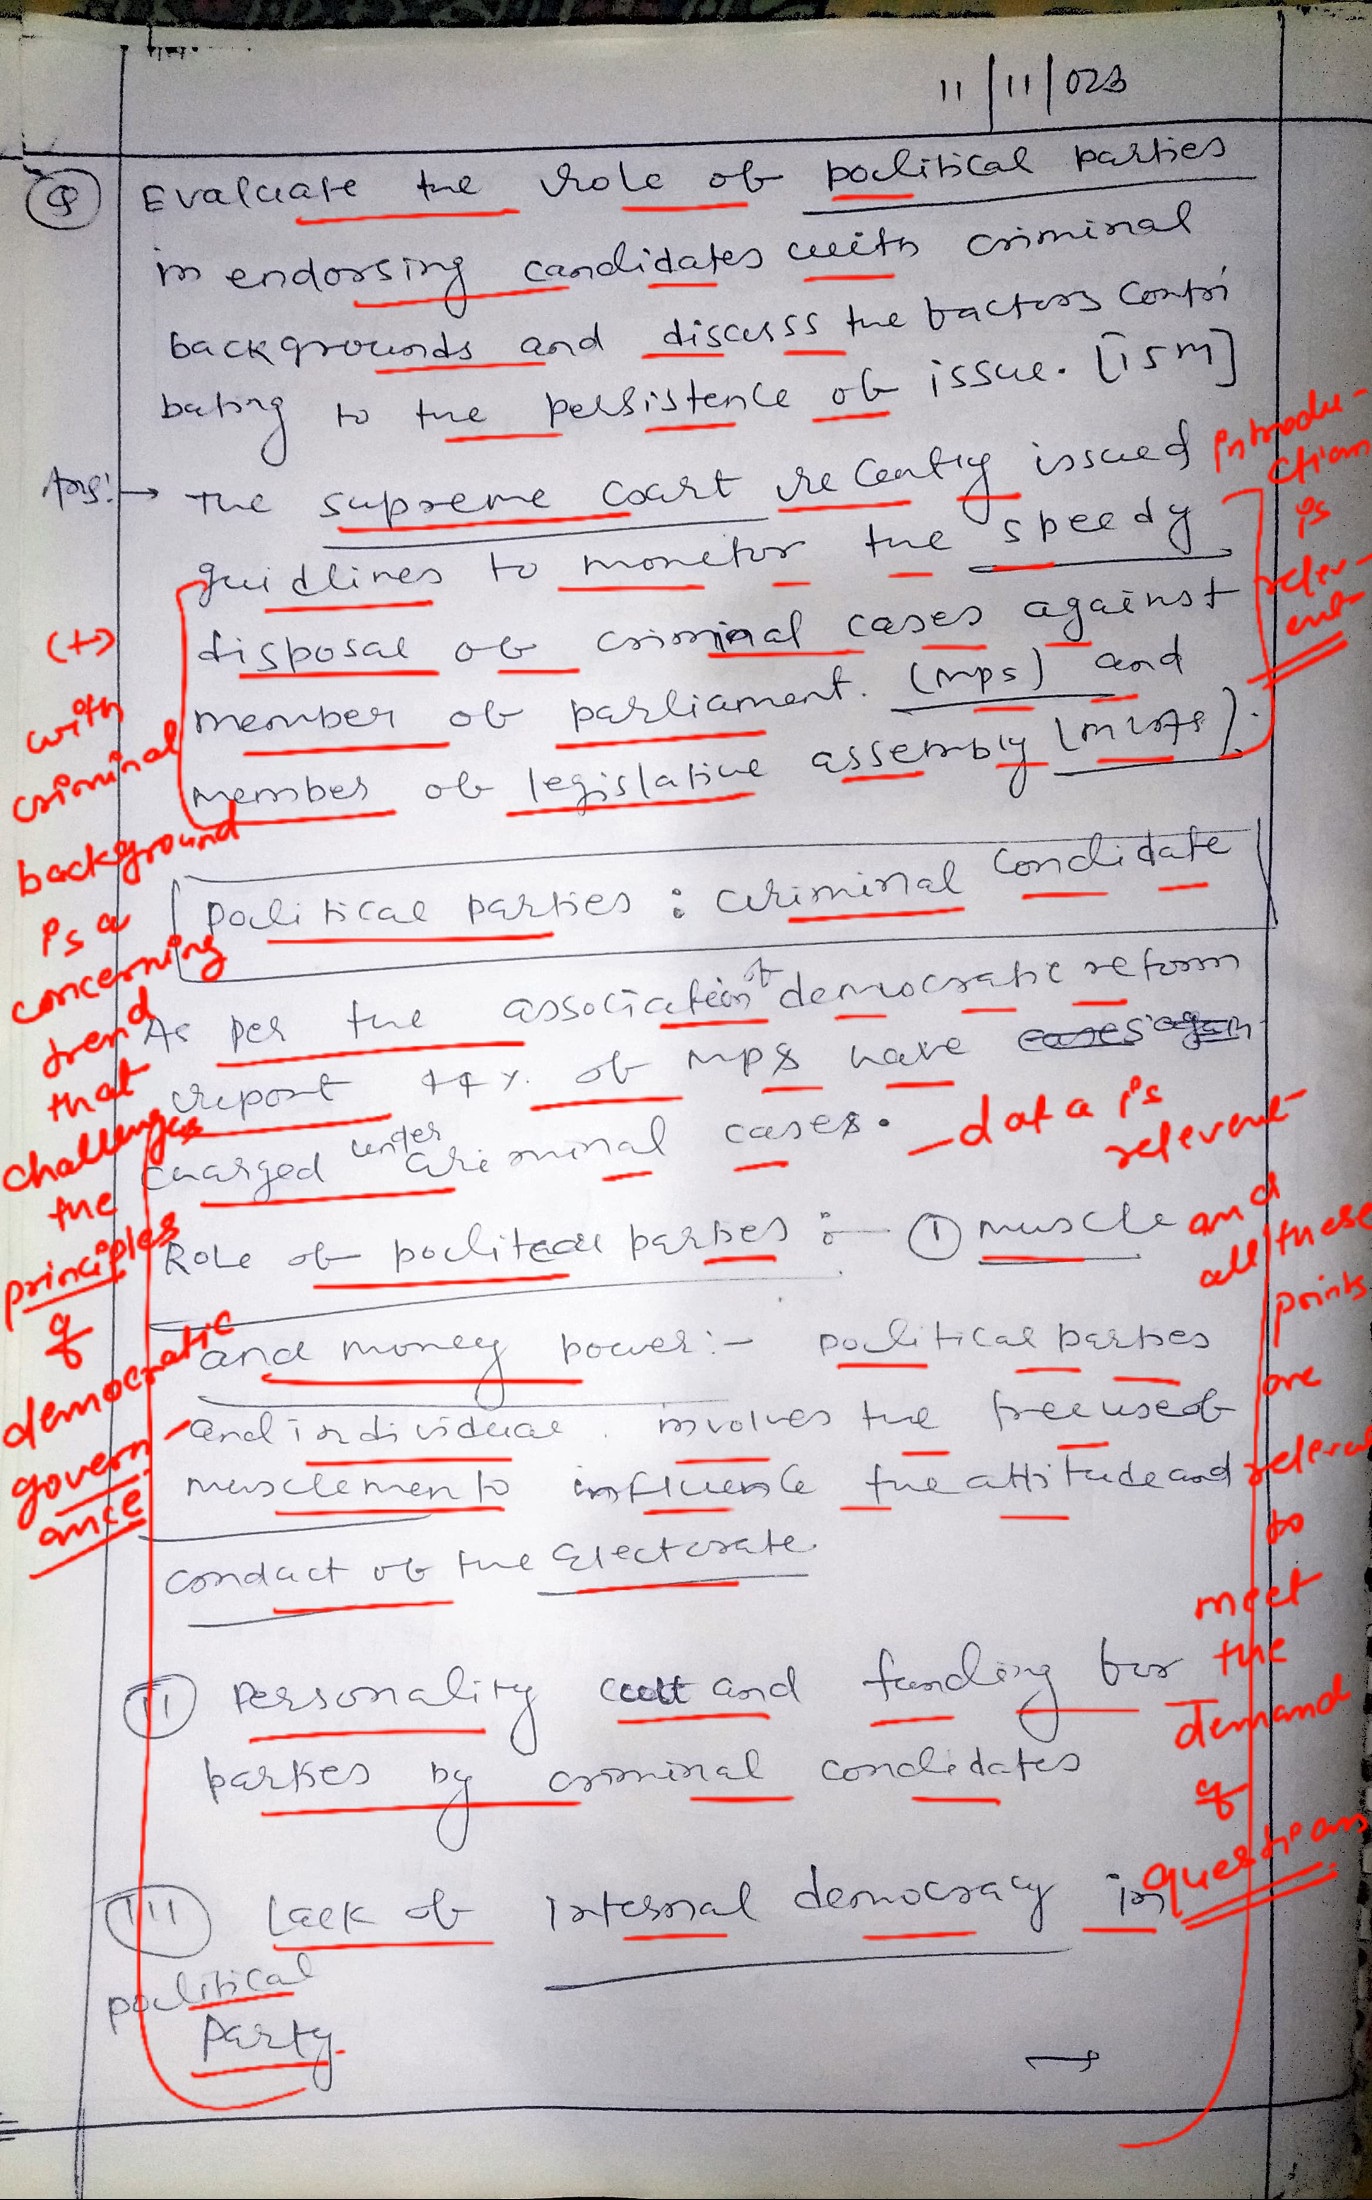 11/11/023
Q Evaluate the role of political parties
in endorsing candidates with criminal
backgrounds and discuss the factors contri
buting to the persistence of issue. [15M]
Ans:→ The supreme court recently issued
guidlines to monitor the speedy
disposal of criminal cases against
member of parliament. (MPs) and
member of legislative assembly (MLAs).
introdu-
ction
is
relev-
ent
(+)
with
criminal
background
is a
concerning
trend
that
challenges
the
principles
of
democratic
govern-
ance
Political parties : criminal condidate
As per the association of democratic reform
report 44%. of MPs have
charged under criminal cases.
- data is
relevent
and
all these
points
are
to
meet
the
demand
of
questions
Role of political parties :- (I) muscle
and money power:- political parties
and individual involves the free use of
musclemen to influence the attitude and
conduct of the Electorate.
(II) Personality cult and funding for
parties by criminal condidates
(III) Lack of internal democracy in
political
Party.
→